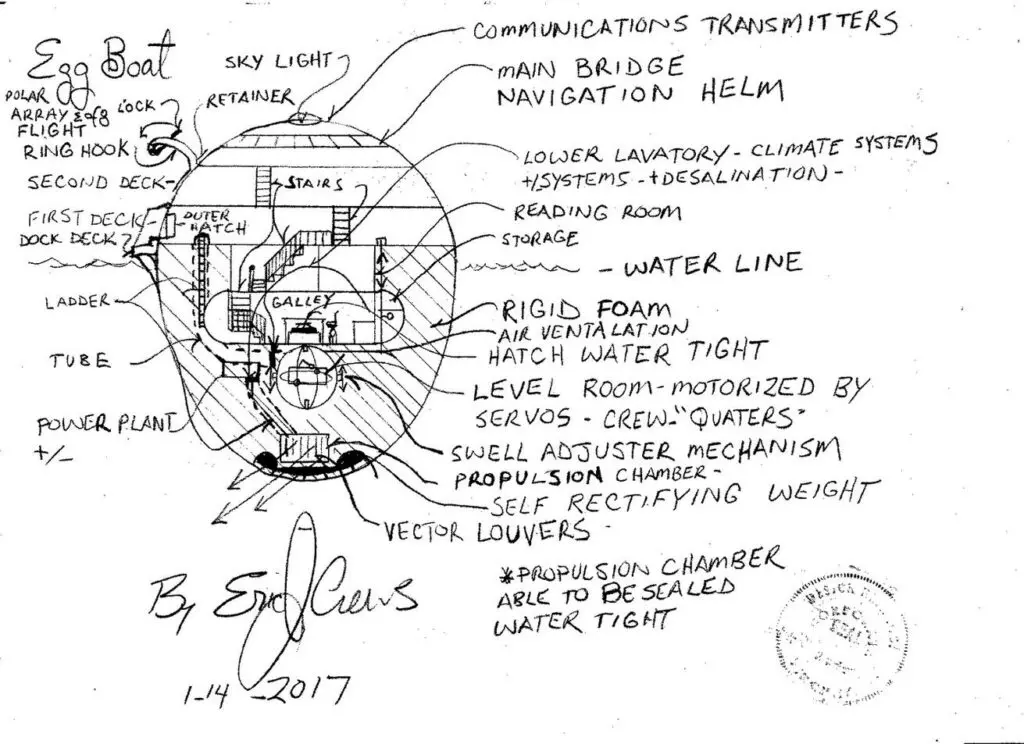 Egg Boat
POLAR
ARRAY
FLIGHT
RING HOOK
LOCK
RETAINER
SKY LIGHT
SECOND DECK
FIRST DECK
DOCK DECK
OUTER
HATCH
STAIRS
LADDER
TUBE
POWER PLANT
+/-
GALLEY
COMMUNICATIONS TRANSMITTERS
MAIN BRIDGE
NAVIGATION HELM
LOWER LAVATORY - CLIMATE SYSTEMS
+/SYSTEMS - + DESALINATION -
READING ROOM
STORAGE
- WATER LINE
RIGID FOAM
AIR VENTALATION
HATCH WATER TIGHT
LEVEL ROOM - MOTORIZED BY
SERVOS - CREW - "QUATERS"
SWELL ADJUSTER MECHANISM
PROPULSION CHAMBER -
SELF RECTIFYING WEIGHT
VECTOR LOUVERS -
*PROPULSION CHAMBER
ABLE TO BE SEALED
WATER TIGHT
By Eric J Crews
1-14-2017